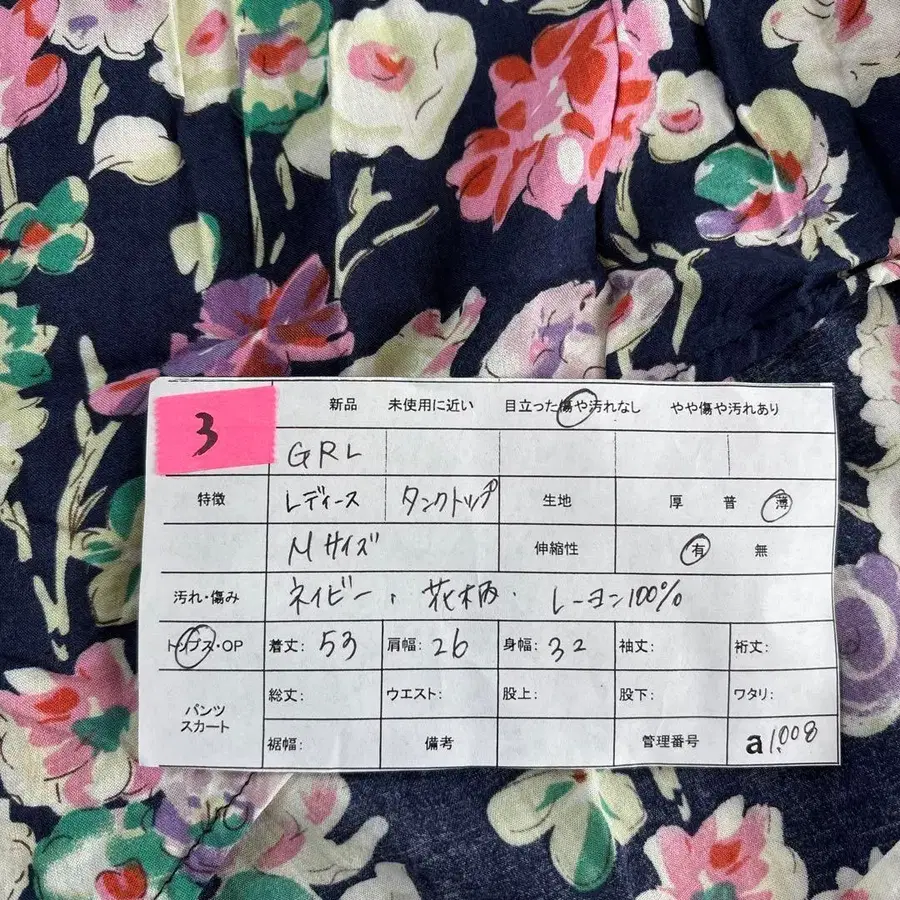 3
新品 未使用に近い 目立った傷や汚れなし やや傷や汚れあり
GRL
特徴 レディース タンクトップ 生地 厚 普 薄
Mサイズ 伸縮性 有 無
汚れ・傷み ネイビー、花柄、レーヨン100%
トップス・OP 着丈: 53 肩幅: 26 身幅: 32 袖丈: 裄丈:
パンツ スカート 総丈: ウエスト: 股上: 股下: ワタリ:
裾幅: 備考 管理番号 a1,008